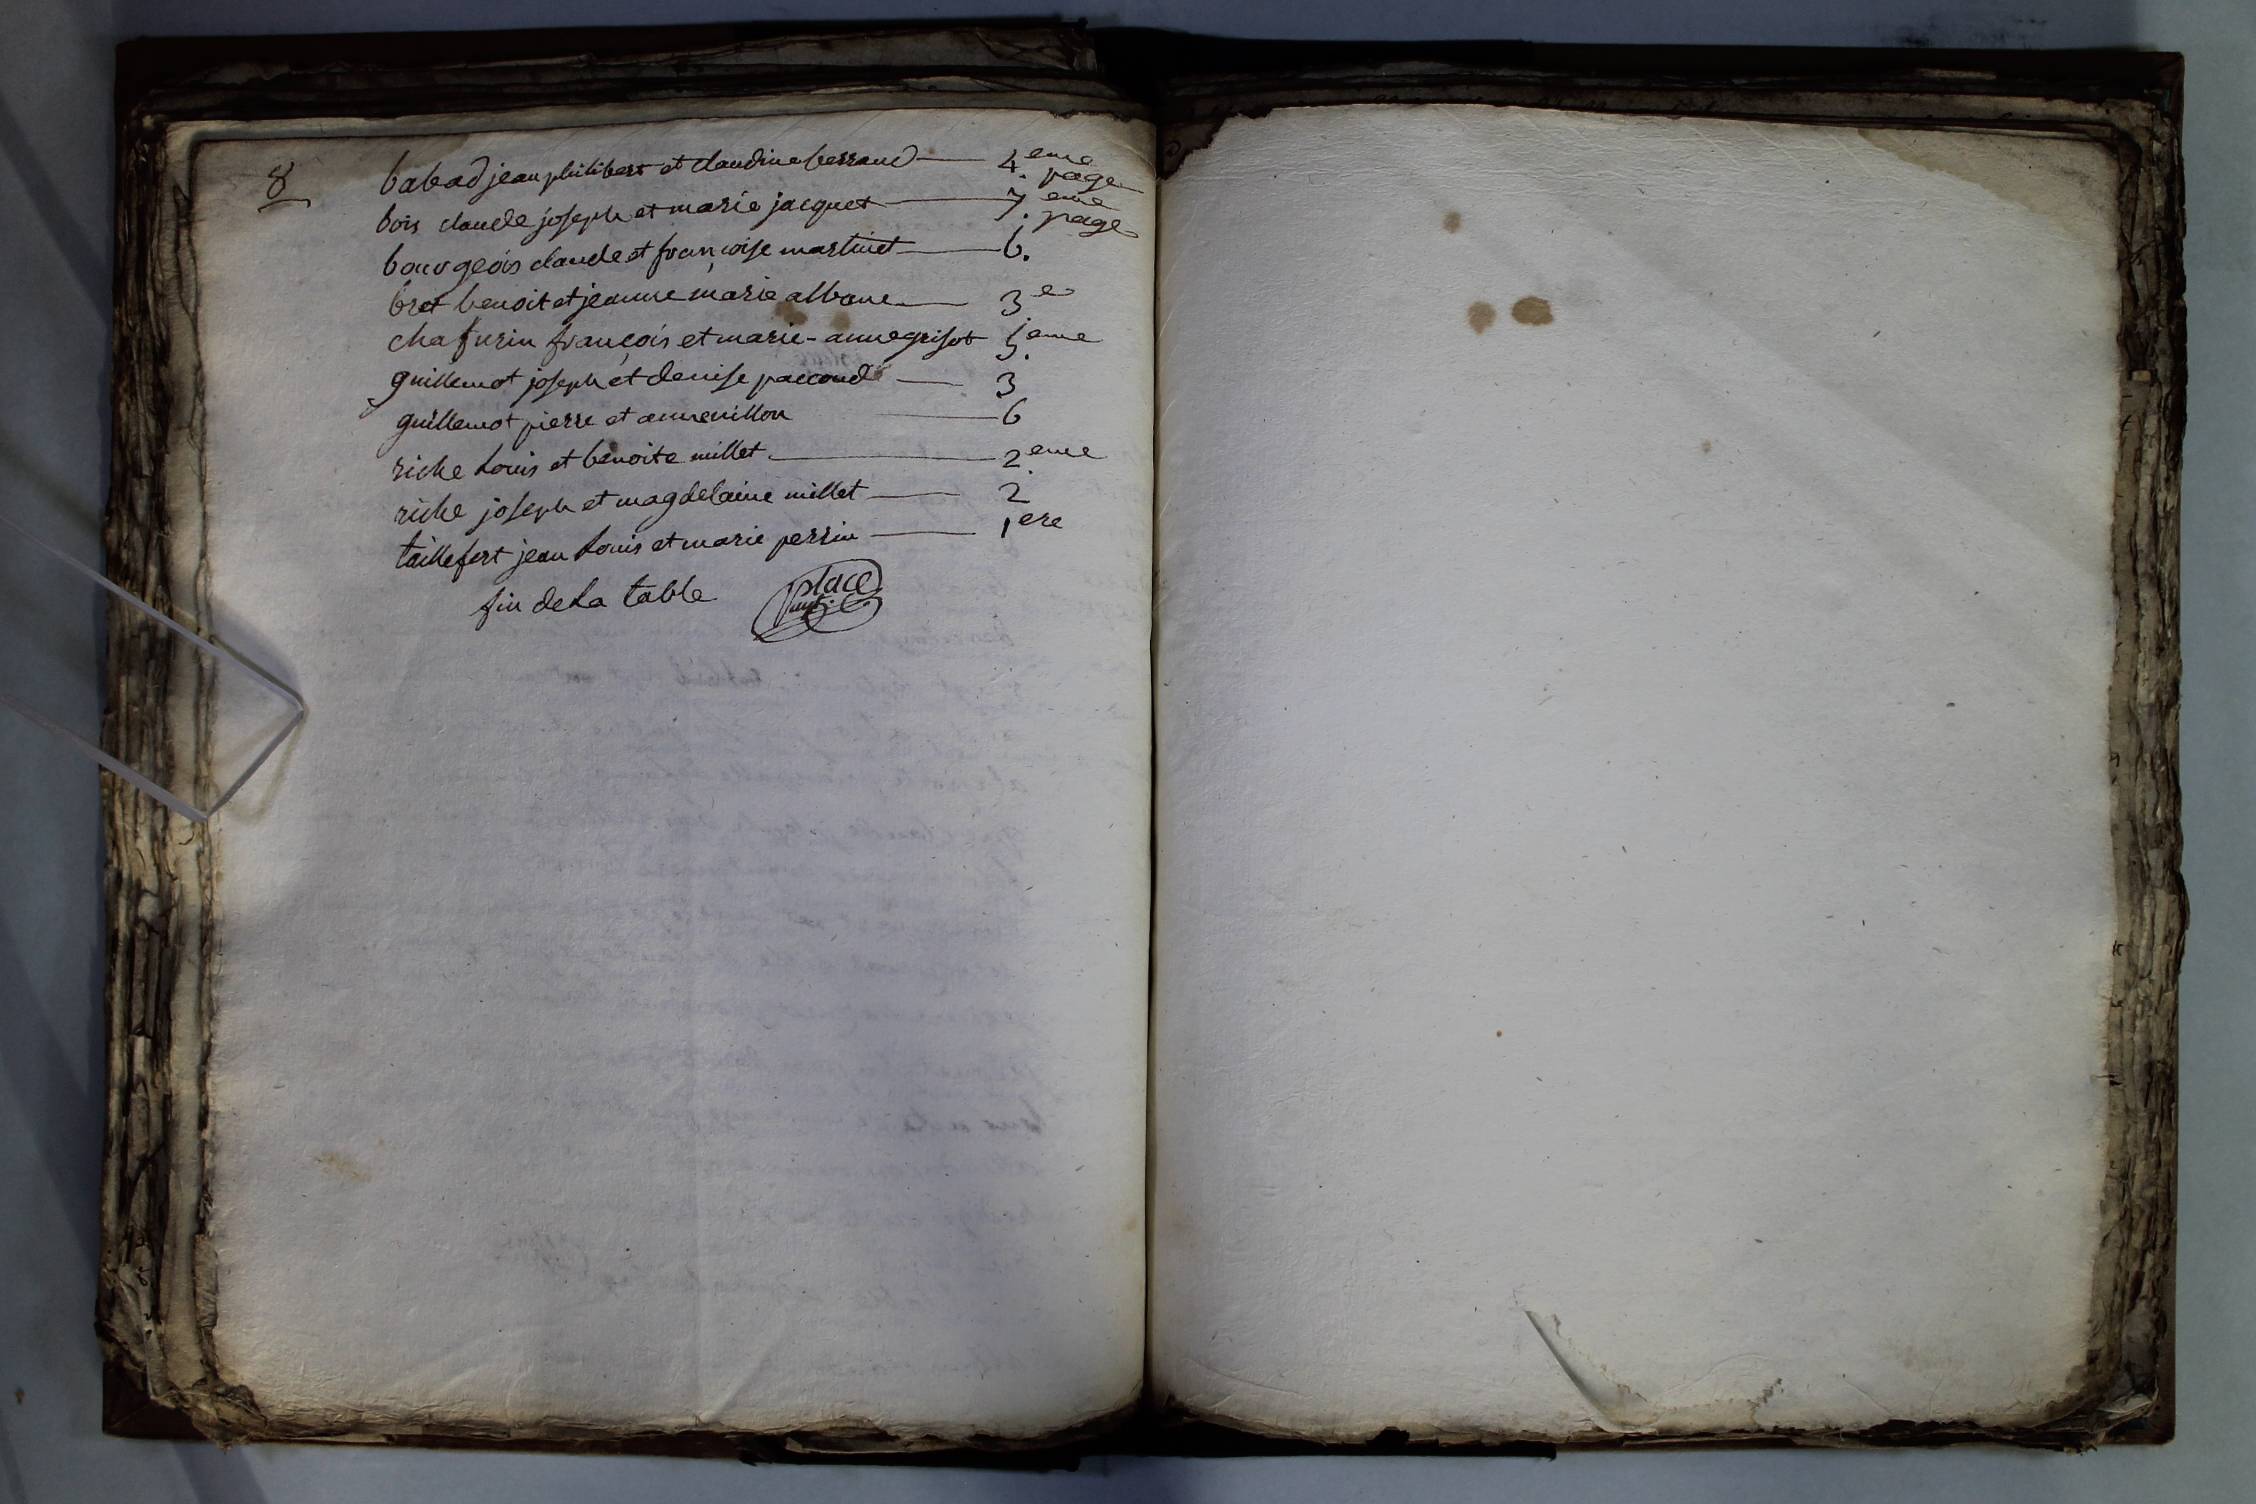 8
babad jean philibert et claudine ferrand — 4.eme page
bois claude joseph et marie jacquet — 7.eme page
bourgeois claude et françoise martinet — 6.
bret benoit et jeanne marie albane — 3e
chafurin françois et marie-anne grisot 5.eme
guillemot joseph et denise paccoud — 3
guillemot pierre et anne nillon — 6
riche Louis et benoite millet — 2eme
riche joseph et magdelaine millet — 2
taillefert jean Louis et marie perrin — 1ere
fin de La table place